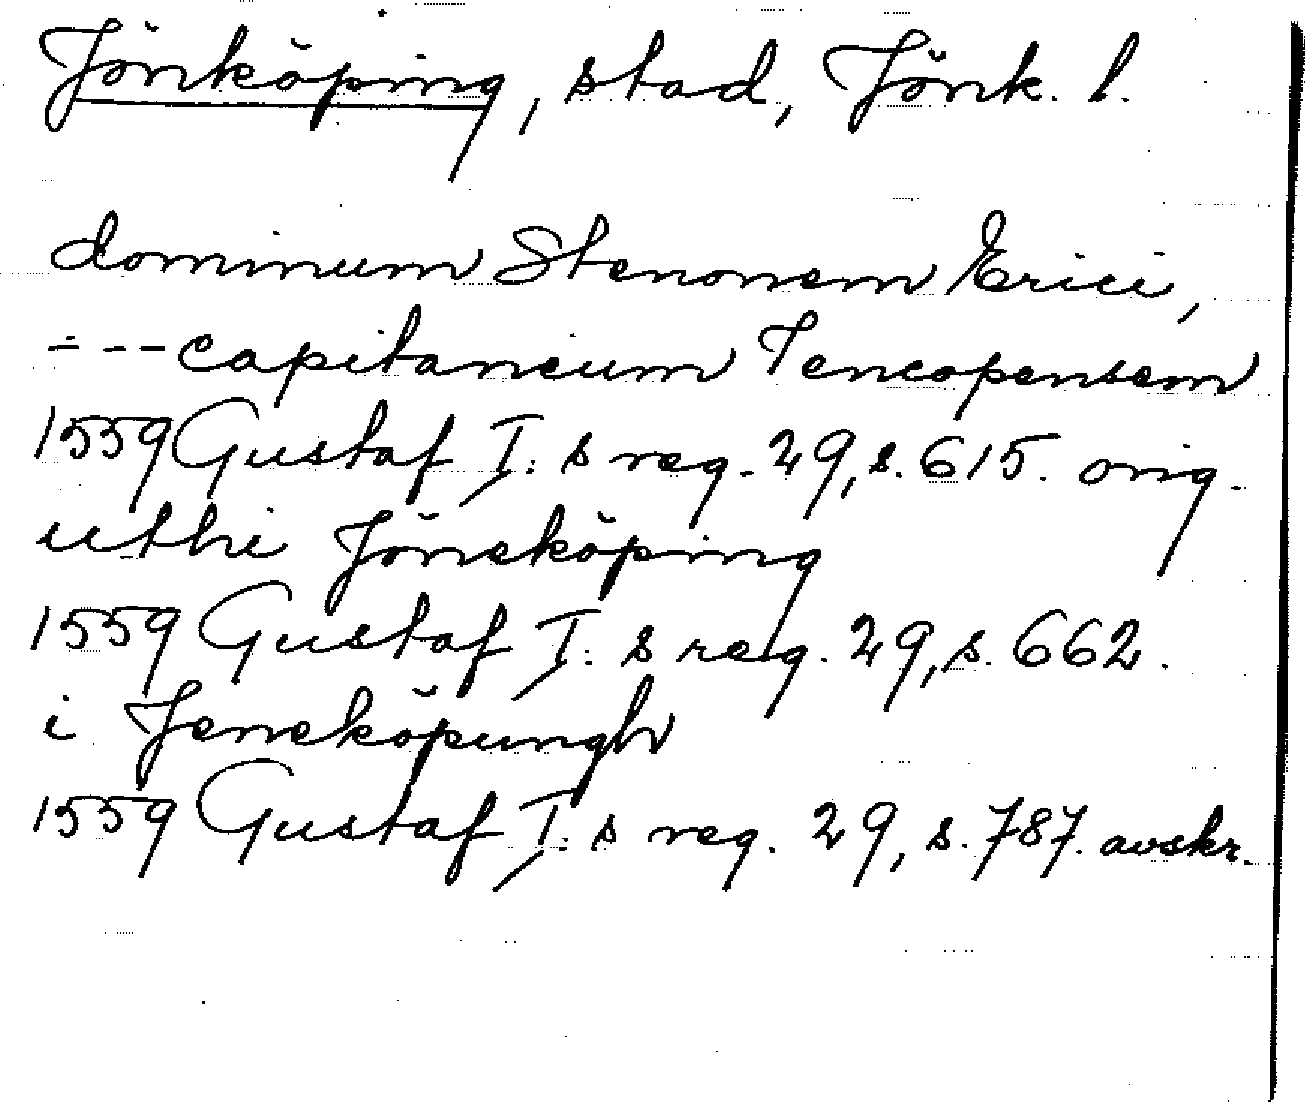 Jönköping, stad, Jönk. l.
dominum Stenonem Erici,
---capitaneum Jencopensem
1559 Gustaf I:s reg. 29, s. 615. orig.
uthi Jöneköping
1559 Gustaf I:s reg. 29, s. 662.
i Jeneköpungh
1559 Gustaf I:s reg. 29, s. 787. avskr.